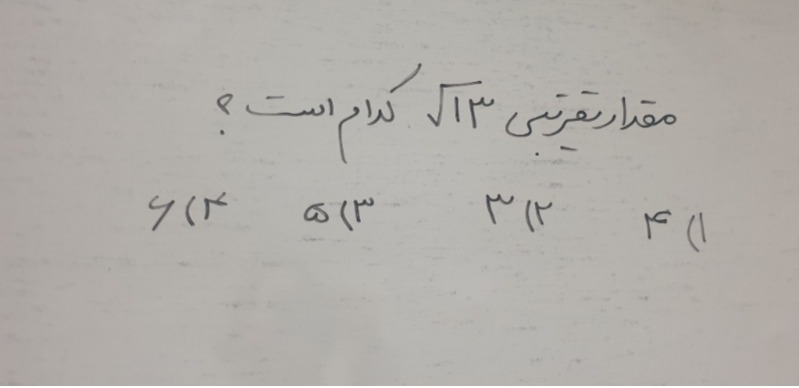 مقدار تقریبی √۱۳ کدام است؟
۱) ۴ ۲) ۳ ۳) ۵ ۴) ۶